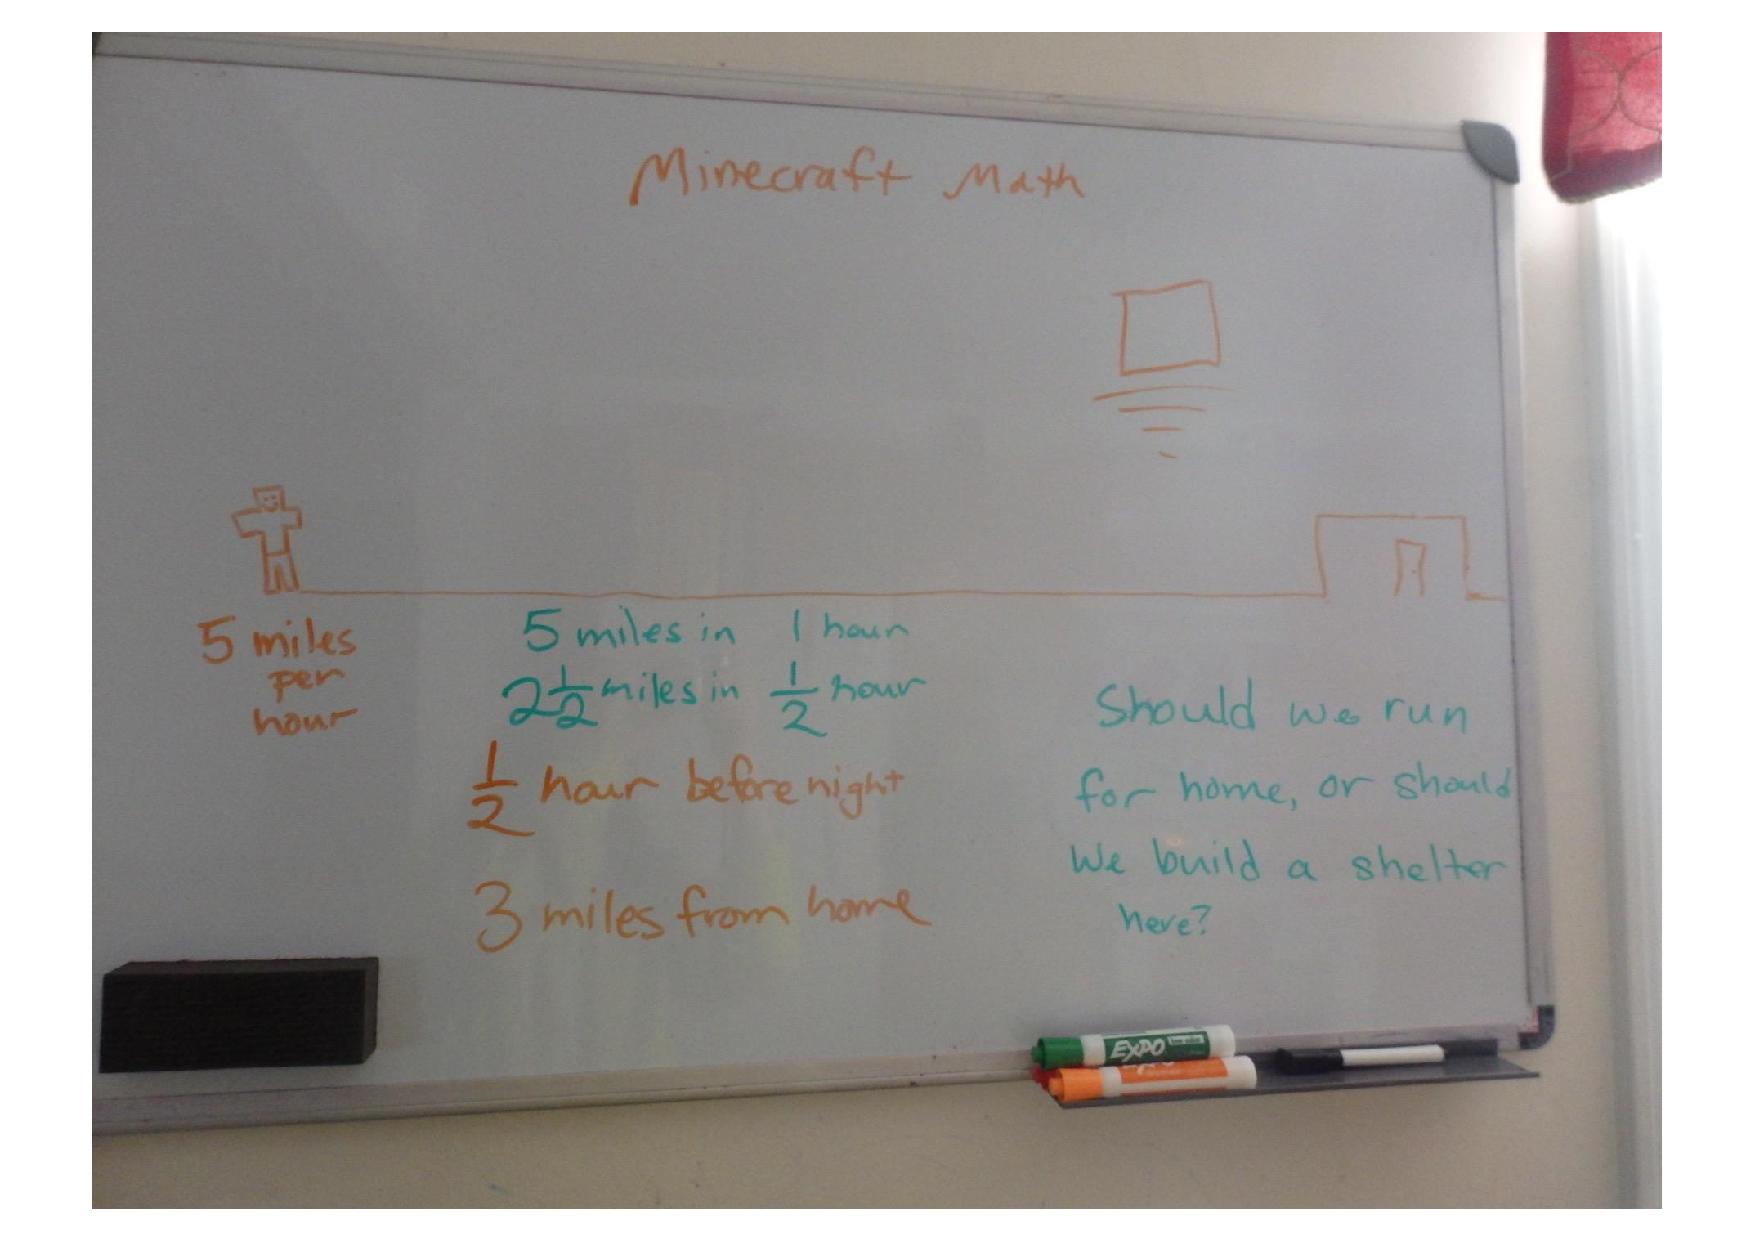 Minecraft Math
5 miles
per
hour
5 miles in 1 hour
2 1/2 miles in 1/2 hour
1/2 hour before night
3 miles from home
Should we run
for home, or should
We build a shelter
here?
EXPO